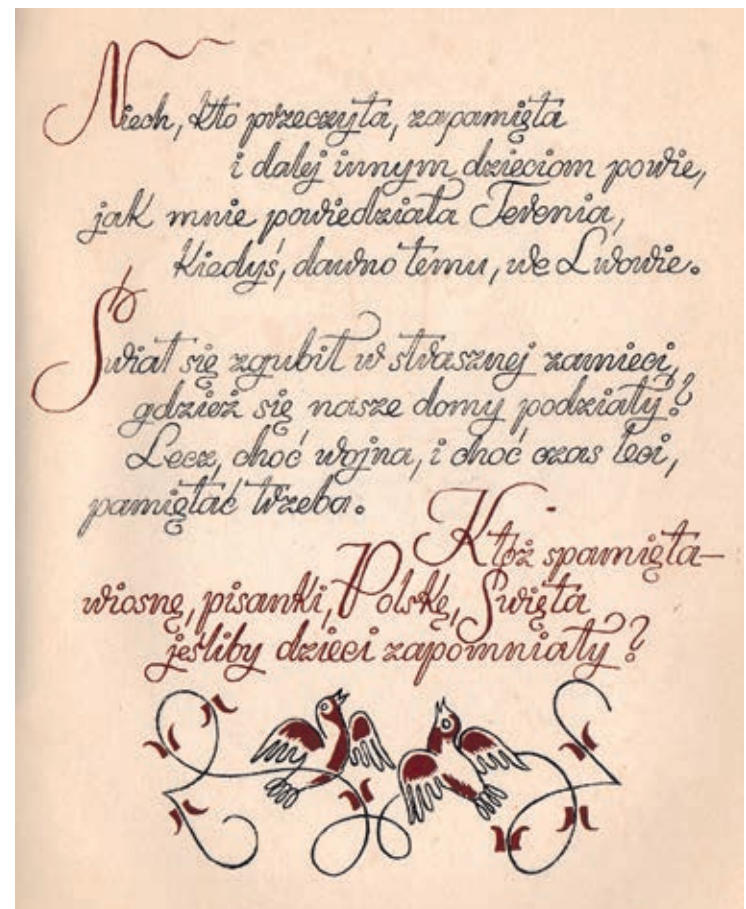 Niech, kto przeczyta, zapamięta
i dalej innym dzieciom powie,
jak mnie powiedziała Terenia,
Kiedyś, dawno temu, we Lwowie.
Świat się zgubił w strasznej zamieci,
gdzież się nasze domy podziały?
Lecz, choć wojna, i choć czas leci,
pamiętać trzeba.
Któż spamięta—
wiosnę, pisanki, Polskę, Święta
jeśliby dzieci zapomniały?